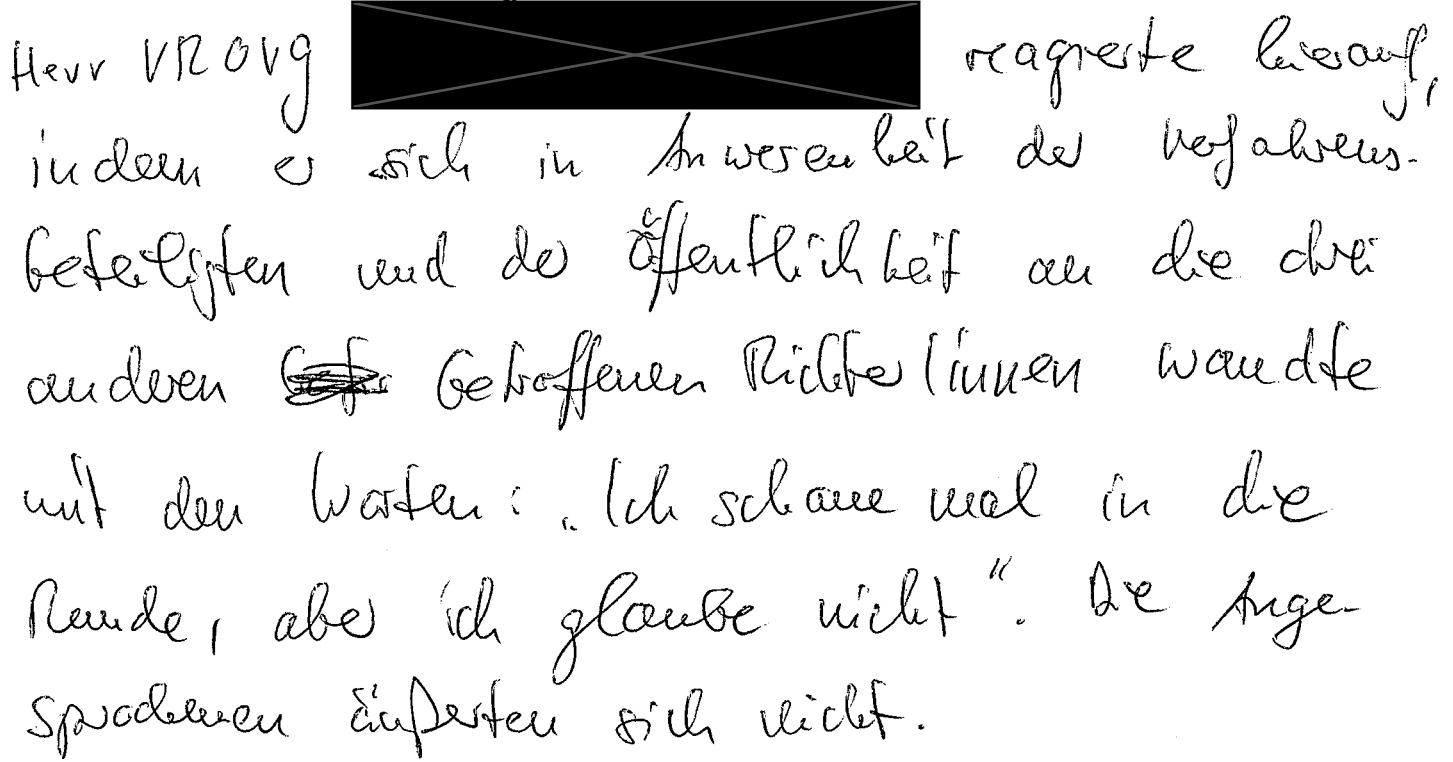 Herr VROVG reagierte hierauf,
indem er sich in Anwesenheit der Verfahrens-
beteiligten und der Öffentlichkeit an die drei
anderen betroffenen Richter/innen wandte
mit den Worten: „Ich schaue mal in die
Runde, aber ich glaube nicht“. Die Ange-
sprochenen äußerten sich nicht.